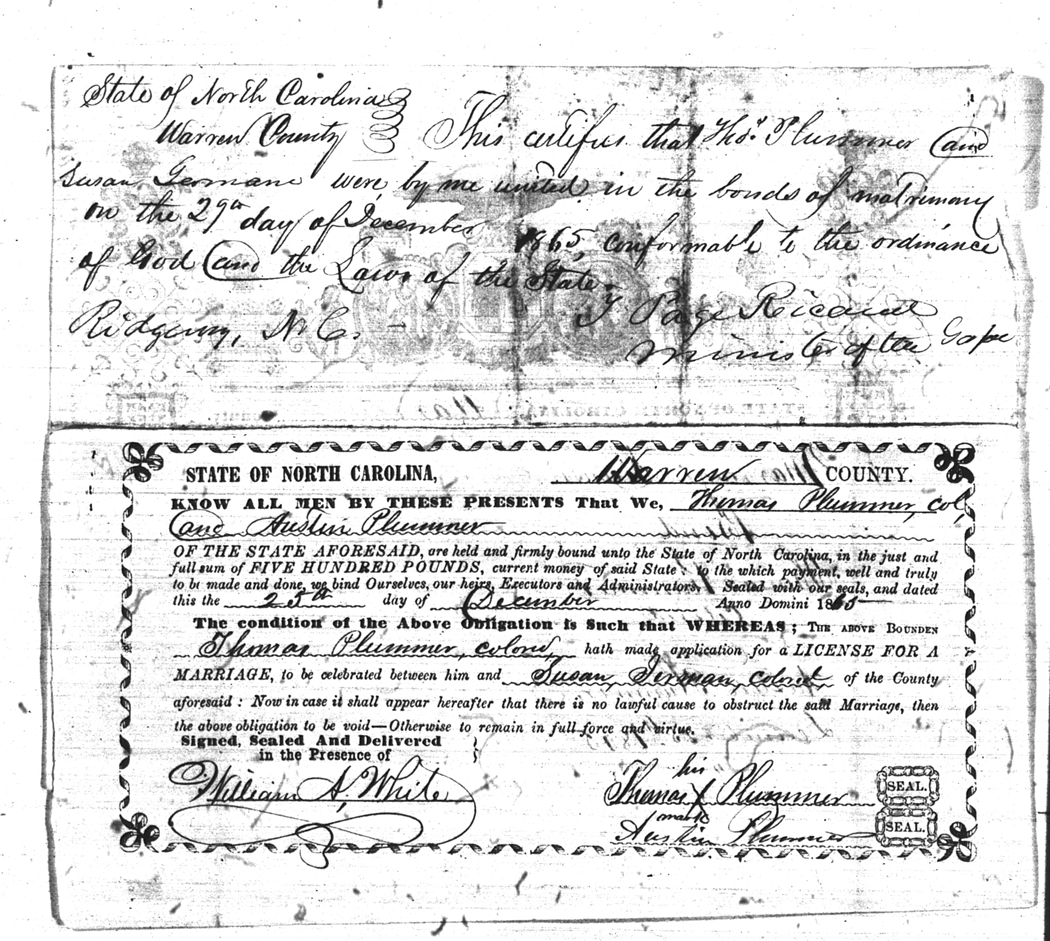 State of North Carolina
Warren County This certifies that Thos. Plummer and
Susan Germane were by me united in the bonds of matrimony
on the 29th day of December 1865, conformable to the ordinance
of God and the Laws of the State.
Ridgeway, N. C. T Page Ricaud
Minister of the Gospe
STATE OF NORTH CAROLINA, Warren COUNTY.
KNOW ALL MEN BY THESE PRESENTS That We, Thomas Plummer, col,
and Austin Plummer
OF THE STATE AFORESAID, are held and firmly bound unto the State of North Carolina, in the just and
full sum of FIVE HUNDRED POUNDS, current money of said State; to the which payment, well and truly
to be made and done, we bind Ourselves, our heirs, Executors and Administrators. Sealed with our seals, and dated
this the 25th day of December Anno Domini 1865
The condition of the Above Obligation is Such that WHEREAS; THE ABOVE BOUNDEN
Thomas Plummer, colored, hath made application for a LICENSE FOR A
MARRIAGE, to be celebrated between him and Susan Jerman, colored of the County
aforesaid: Now in case it shall appear hereafter that there is no lawful cause to obstruct the said Marriage, then
the above obligation to be void—Otherwise to remain in full force and virtue.
Signed, Sealed And Delivered
in the Presence of
William A. White
his
Thomas X Plummer SEAL.
mark
Austin Plummer SEAL.